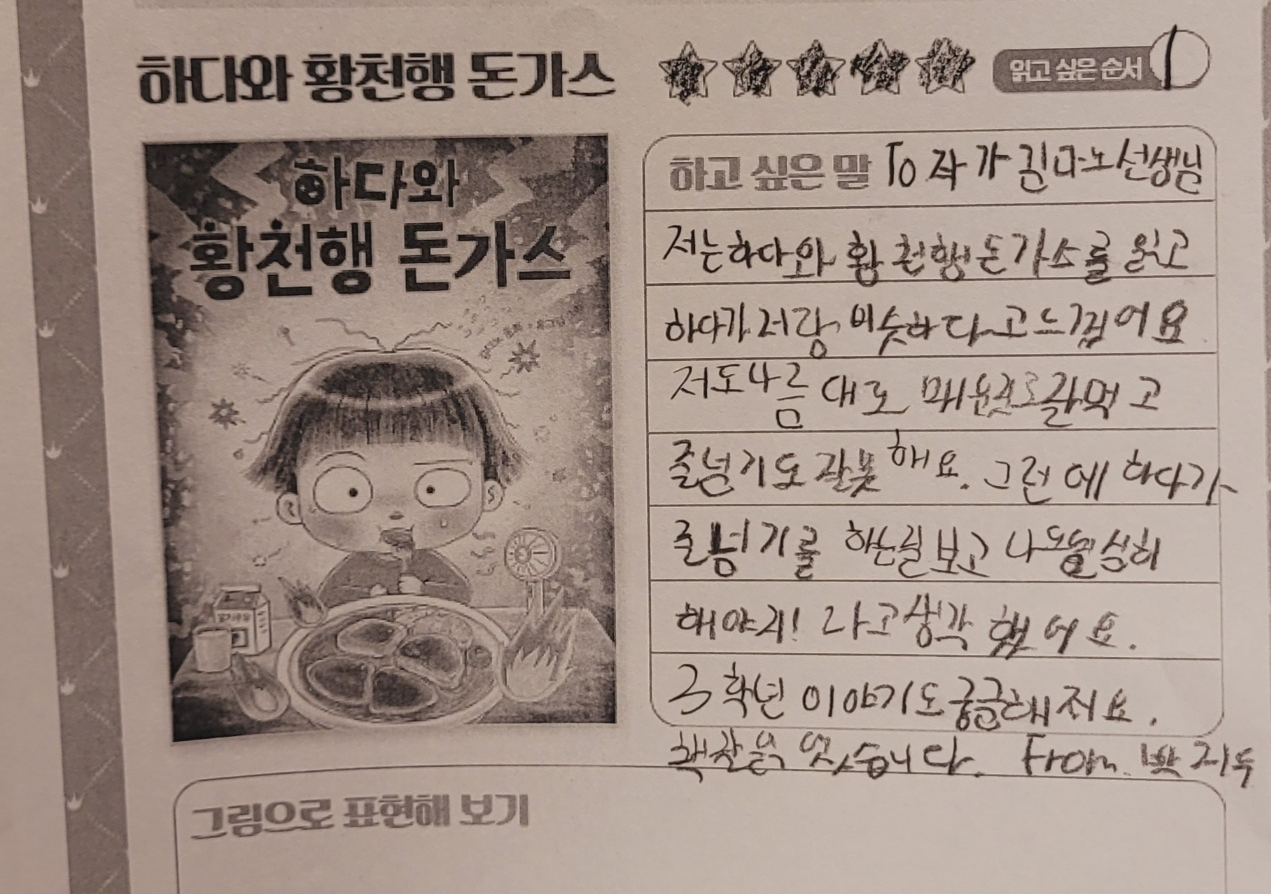 하다와 황천행 돈가스
읽고 싶은 순서 1
하다와
황천행 돈가스
하고 싶은 말 To 작가 김다노선생님
저는하다와 황천행돈가스를 읽고
하다가 저랑 비슷하다고느꼈어요
저도나름대로 매운걸로잘먹고
줄넘기도 잘못해요. 그런데 하다가
줄넘기를 하는걸보고 나도열심히
해야지! 라고생각했어요.
3학년이야기도궁금해져요.
책잘읽었습니다. From. 지우
그림으로 표현해 보기